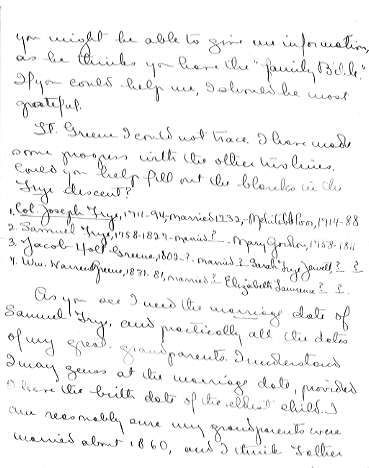 you might be able to give me information,
as he thinks you have the "family Bible."
If you could help me, I should be most
grateful.
St. Greene I could not trace. I have made
some progress with the other lines.
Could you help fill out the blanks in the
Frye descent?
1. Col. Joseph Frye, 1711-94, married 1732, Mehitable Poor, 1714-88
2. Samuel Frye, 1758-1827 - married ? - Mary Gordon, 1758-
3. Jacob Holt Greene, 1802-?. married ? Sarah Frye Jewett ? ?
4. Wm. Warren Greene, 1831-81, married ? Elizabeth Lawrence ? ?
As you see I need the marriage date of
Samuel Frye, and practically all the dates
of my great-grandparents. I understand
I may guess at the marriage date, provided
I have the birth date of the eldest child. I
am reasonably sure my grandparents were
married about 1860, and I think Father